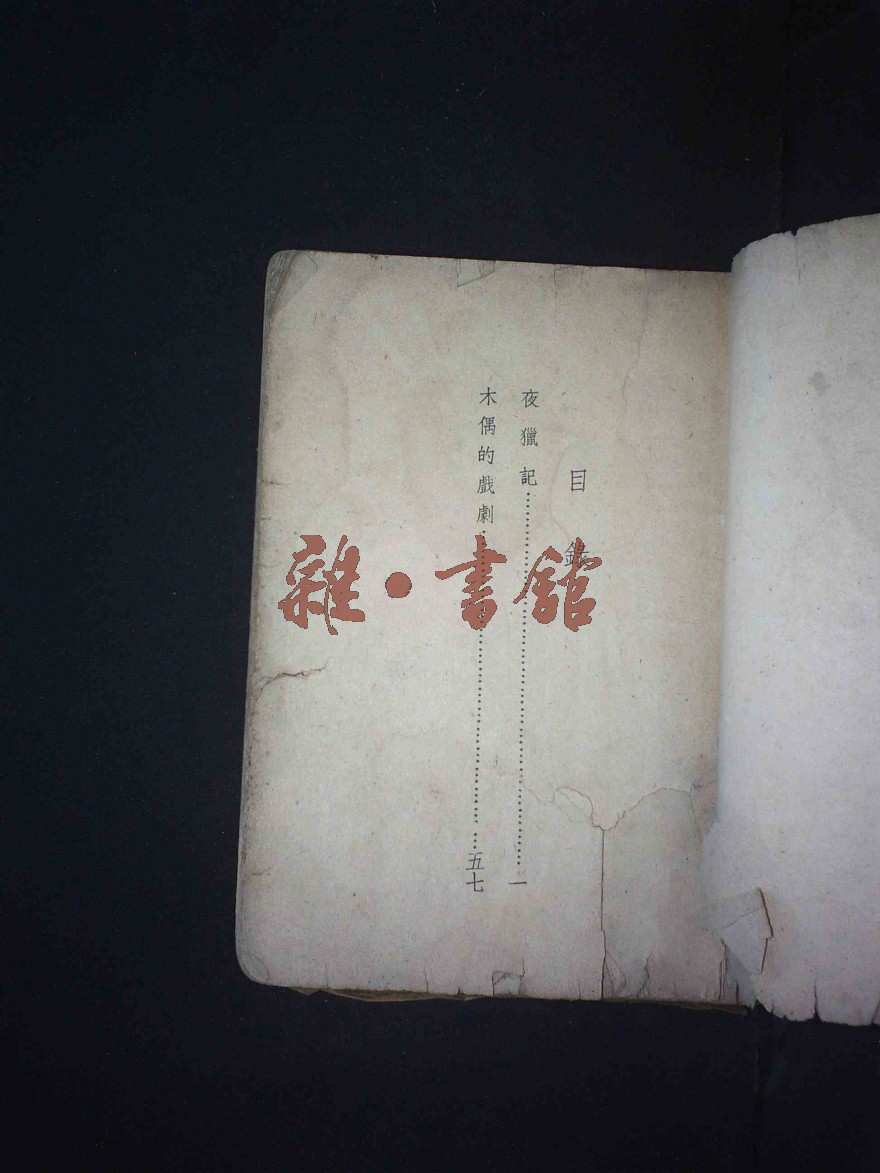 目錄
夜獵記……一
木偶的戲劇……五七
雜·書館